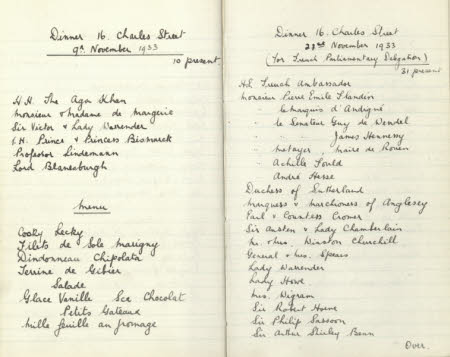 Dinner 16. Charles Street
9th November 1933
10 present
H.H. The Aga Khan
Monsieur & Madame de Margerie
Sir Victor & Lady Warrender
Prince & Princess Bismarck
Professor Lindemann
Lord Blanesburgh
Menu
Cocky Leeky
Filets de Sole Marigny
Dindonneau Chipolata
Terrine de Gibier
Salade
Glace Vanille Sce Chocolat
Petits Gateaux
Mille feuille au fromage
Dinner 16. Charles Street
November 1933
(For French Parliamentary Delegation)
31 present
H.E French Ambassador
Monsieur Pierre Emile Flandin
" le Marquis d'Andigné
" le Senateur Guy de Wendel
" James Hennessy
" Metayer, Maire de Rouen
" Achille Fould
" André Hesse
Duchess of Sutherland
Marquess & Marchioness of Anglesey
Earl & Countess Cromer
Sir Austen & Lady Chamberlain
Mr. & Mrs. Winston Churchill
General & Mrs. Spears
Lady Warrender
Lady Howe
Mrs. Wigram
Sir Robert Horne
Sir Philip Sassoon
Sir Arthur Shirley Benn
Over.